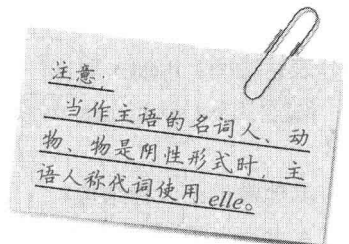 注意:
当作主语的名词人、动
物、物是阴性形式时，主
语人称代词使用 elle。